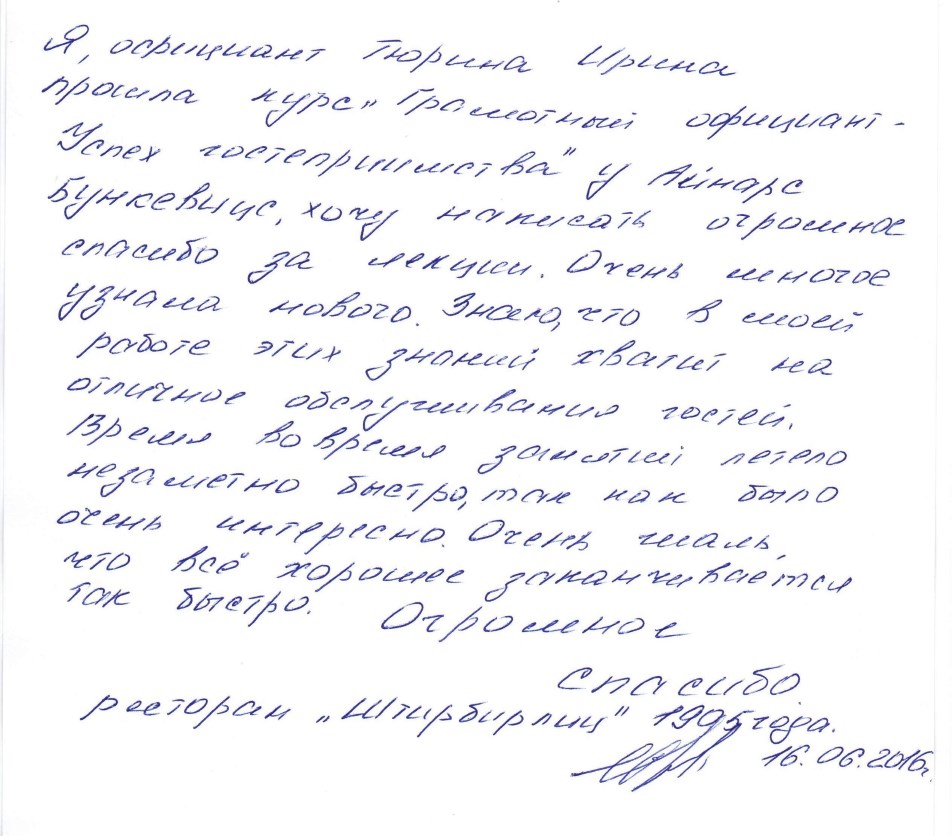 Я, официант Тюрина Ирина
прошла курс „Грамотный официант -
Успех гостеприимства" у Айнарс
Бункевицс, хочу написать огромное
спасибо за лекции. Очень многое
узнала нового. Знаю, что в моей
работе этих знаний хватит на
отличное обслуживания гостей.
Время во время занятий летело
незаметно быстро, так как было
очень интересно. Очень жаль,
что всё хорошее заканчивается
так быстро. Огромное
спасибо.
ресторан „Штирбирлиц" 1995 года.
16.06.2016г.